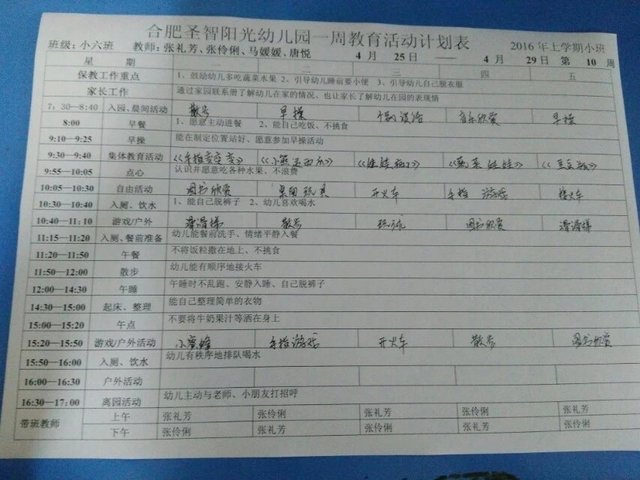 合肥圣智阳光幼儿园一周教育活动计划表
班级：小六班 教师：张礼芳、张伶俐、马媛媛、唐悦 4 月 25 日—— 4 月 29 日 第 10 周 2016 年上学期小班
星 期 一 二 三 四 五
保教工作重点 1、鼓励幼儿多吃蔬菜水果 2、引导幼儿睡前要小便 3、引导幼儿自己脱衣服
家长工作 通过家园联系册了解幼儿在家的情况、也让家长了解幼儿在园的表现情
7：30—8:40 入园、晨间活动 散步 早操 个别谈话 音乐欣赏 早操
8:00 早餐 1、愿意主动进餐 2、能自己吃饭、不挑食
9:10—9:25 早操 能在制定位置站好、愿意参加早操活动
9:30—9:40 集体教育活动
9:55—10:05 点心 认识并愿意吃各种水果、不浪费
10:05—10:30 自由活动 图书欣赏 桌面玩具 开火车 手指游戏 接火车
10:30—10:40 入厕、饮水 1、能自己脱裤子 2、幼儿喜欢喝水
10:40—11:10 游戏/户外 滑滑梯 散步 玩球 图书欣赏 滑滑梯
11:15—11:20 入厕、餐前准备 幼儿能餐前洗手、情绪平静入餐
11:20—11:50 午餐 不将饭粒撒在地上、不挑食
11:50—12:00 散步 幼儿能有顺序地接火车
12:00—14:30 午睡 午睡时不乱跑、安静入睡、自己脱裤子
14:30—15:00 起床、整理 能自己整理简单的衣物
15:00—15:20 午点 不要将牛奶果汁等洒在身上
15:20—15:50 游戏/户外活动 小蜜蜂 手指游戏 开火车 散步 图书欣赏
15:50—16:00 入厕、饮水 幼儿有秩序地排队喝水
16:00—16:30 户外活动
16:30—17:00 离园活动 幼儿主动与老师、小朋友打招呼
带班教师 上午 张礼芳 张伶俐 张礼芳 张伶俐 张礼芳
下午 张伶俐 张礼芳 张伶俐 张礼芳 张伶俐